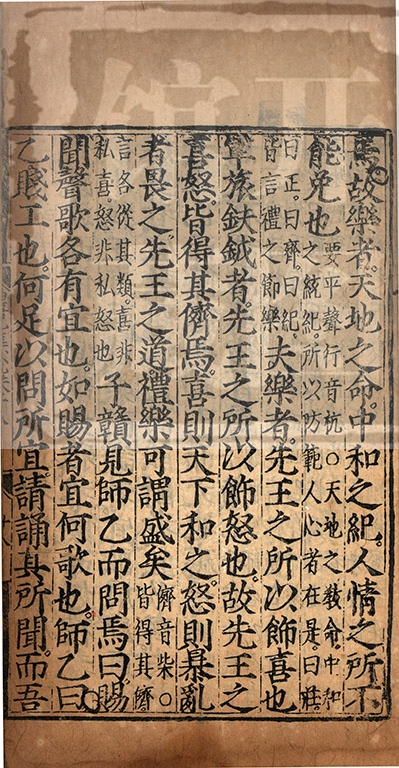 焉故樂者天地之命中和之紀人情之所不
能免也
要平聲行音杭○天地之教命中和
之統紀所以防範人心者在是曰莊
曰正曰齊曰紀
皆言禮之節樂
夫樂者先王之所以飾喜也
軍旅鈇鉞者先王之所以飾怒也故先王之
喜怒皆得其儕焉喜則天下和之怒則暴亂
者畏之先王之道禮樂可謂盛矣
儕音柴○
皆得其儕
言各從其類喜非
私喜怒非私怒也
子贛見師乙而問焉曰賜
聞聲歌各有宜也如賜者宜何歌也師乙曰
乙賤工也何足以問所宜請誦其所聞而吾